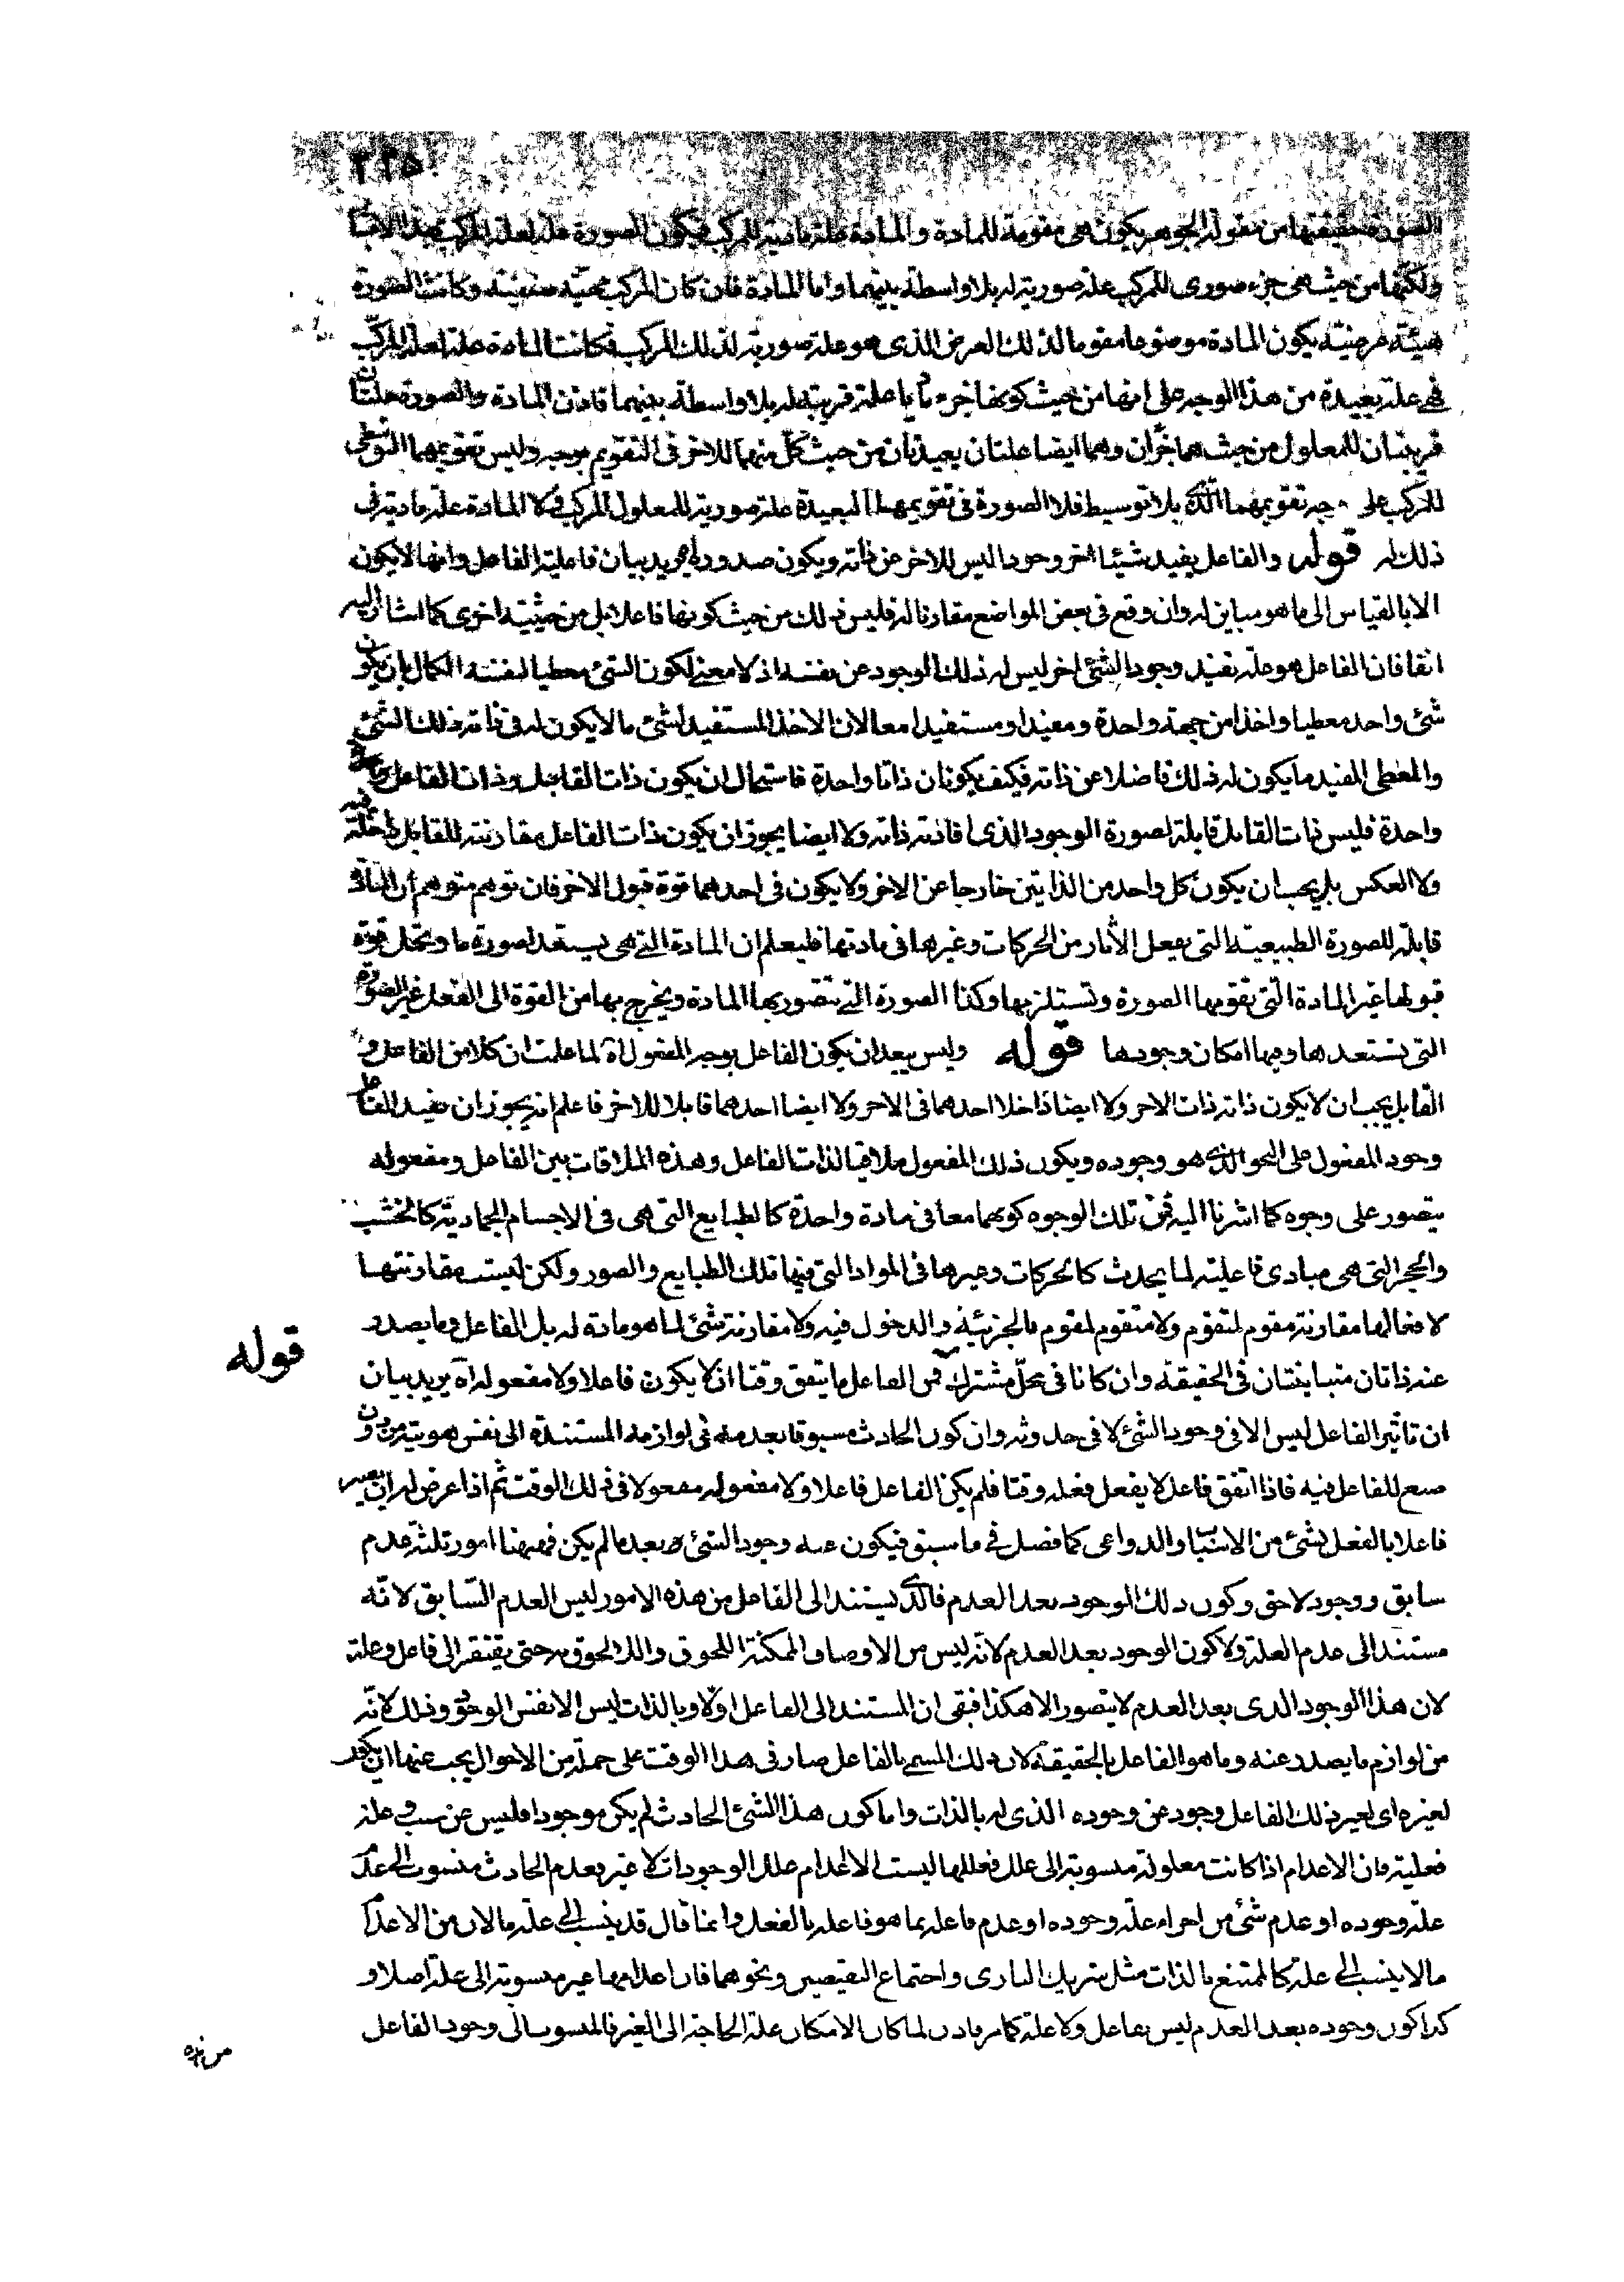 ٢٢٥
الصورة حقيقتها من مقولة الجوهر يكون هي مقومة للمادة والمادة علة مادية للمركب فيكون الصورة علة لعلة المركب بهذا الاعتبار
ولكنها من حيث هي جزء صوري للمركب علة صورية له بلا واسطة بينهما واما المادة فان كان المركب صنفية وكانت الصورة
هيئة عرضية يكون المادة موضوعا مقوما لذلك العرض الذي هو علة صورية لذلك المركب فكانت المادة علة لعلة المركب
فهي علة بعيدة من هذا الوجه على انها من حيث كونها جزء ماديا علة قريبة له بلا واسطة بينهما فاذن المادة والصورة علتان
قريبتان للمعلول من حيث هما جزآن وهما ايضا علتان بعيدتان من حيث كل منهما للاخر في التقويم بوجه وليس تقويمهما التوسطي
للمركب على وجه تقويمهما الذي بلا توسيط فلا الصورة في تقويمها البعيدة علة صورية للمعلول المركب فكلا المادة علة مادية في
ذلك له قوله والفاعل يفيد شيئا اخر وجودا ليس للاخر عن ذاته ويكون صدور يريد بيان فاعلية الفاعل وانها لا يكون
الا بالقياس الى ما هو مباين له وان وقع في بعض المواضع مقارنا له فليس ذلك من حيث كونها فاعلا بل من حيثية اخرى كما اشار اليه
انفا فان الفاعل هو علة يفيد وجود الشئ اخر ليس له ذلك الوجود عن نفسه اذ لا معنى لكون الشئ معطيا لنفسه الكمال بان يكون
شئ واحد معطيا واخذا من جهة واحدة ومفيدا ومستفيدا معا لان الاخذ المستفيد لشئ ما لا يكون له في ذاته ذلك الشئ
والمعطى المفيد ما يكون له ذلك فاضلا عن ذاته فكيف يكونان ذاتا واحدة فاستحال ان يكون ذات القابل وذات الفاعل
واحدة فليس ذات القابل قابلة لصورة الوجود الذي افادته ذاته ولا ايضا يجوز ان يكون ذات الفاعل مقارنة للقابل داخلة فيه
ولا العكس بل يجب ان يكون كل واحد من الذاتين خارجا عن الاخر ولا يكون في احدهما قوة قبول الاخر فان توهم متوهم أن المادة
قابلة للصورة الطبيعية التي يفعل الأثار من الحركات وغيرها في مادتها فليعلم ان المادة التي هي يستعد لصورة ما ويحمل قوة
قبولها غير المادة التي يقومها الصورة وتستلزمها وكذا الصورة التي تتصور بها المادة ويخرج بها من القوة الى الفعل غير الصورة
التي يستعد لها وفيها امكان وجودها قوله وليس ببعيد ان يكون الفاعل يوجد المفعول اه لما علمت ان كلا من الفاعل و
القابل يجب ان لا يكون ذاته ذات الاخر ولا ايضا داخلا احدهما في الاخر ولا ايضا احدهما قابلا للاخر فاعلم انه يجوز ان يفيد الفاعل
وجود المفعول على النحو الذي هو وجوده ويكون ذلك المفعول ملاقيا لذات الفاعل وهذه الملاقات بين الفاعل ومفعوله
يتصور على وجوه كما اشرنا اليه فمن تلك الوجوه كونهما معا في مادة واحدة كالطبايع التي هي في الاجسام الجمادية كالخشب
والحجر التي هي مبادى فاعلية لما يحدث كالحركات وغيرها في المواد التي فيها تلك الطبايع والصور ولكن ليست مقارنتها
لافعالها مقارنة مقوم لمتقوم ولا متقوم لمقوم بالجزئية والدخول فيه ولا مقارنة شئ لما هو مادة له بل الفاعل وما يصدر
عنه ذاتان متباينتان في الحقيقة وان كانا في محل مشترك فمن الفاعل ما يتفق وقتا ان لا يكون فاعلا ولا مفعوله اه يريد بيان
قوله
ان تاثير الفاعل ليس الا في وجود الشئ لا في حدوثه وان كون الحادث مسبوقا بعدمه في لوازمه المستندة الى نفس هويته من دون
صنع للفاعل فيه فاذا اتفق فاعل لا يفعل فعله وقتا فلم يكن الفاعل فاعلا ولا مفعوله مفعولا في ذلك الوقت ثم اذا عرض له ان يصير
فاعلا بالفعل بشئ من الاسباب والدواعى كما فصل في ما سبق فيكون عنه وجود الشئ بعد ما لم يكن فههنا امور ثلثة عدم
سابق ووجود لاحق وكون ذلك الوجود بعد العدم فالذي يستند الى الفاعل من هذه الامور ليس العدم السابق لانه
مستند الى عدم العلة ولا كون الوجود بعد العدم لانه ليس من الاوصاف الممكنة اللحوق واللالحوق به حتى يفتقر الى فاعل وعلة
لان هذا الوجود الذي بعد العدم لا يتصور الا هكذا فبقى ان المستند الى الفاعل اولا وبالذات ليس الا نفس الوجود وذلك لانه
من لوازم ما يصدر عنه وما هو الفاعل بالحقيقة لان ذلك المسمى بالفاعل صار في هذا الوقت على جملة من الاحوال يجب عنها ان يكون
لغيره اى لغير ذلك الفاعل وجود عن وجوده الذي له بالذات واما كون هذا الشئ الحادث لم يكن موجودا فليس عن سبب وعلة
فعلية فان الاعدام اذا كانت معلولة منسوبة الى علل فعللها ليست الا اعدام علل الوجودات لا غير بعدم الحادث منسوب الى عدم
علة وجوده او عدم شئ من اجزاء علة وجوده او عدم فاعله بما هو فاعله بالفعل وانما قال قد ينسب الى علة ما لان من الاعدام
ما لا ينسب الى علة كالممتنع بالذات مثل شريك البارى واجتماع النقيضين ونحوهما فان اعدامها غير منسوبة الى علة اصلا و
كذا كون وجوده بعد العدم ليس بفاعل ولا علة كما مر فاذن لما كان الامكان علة الحاجة الى الغير فالمنسوب الى وجود الفاعل